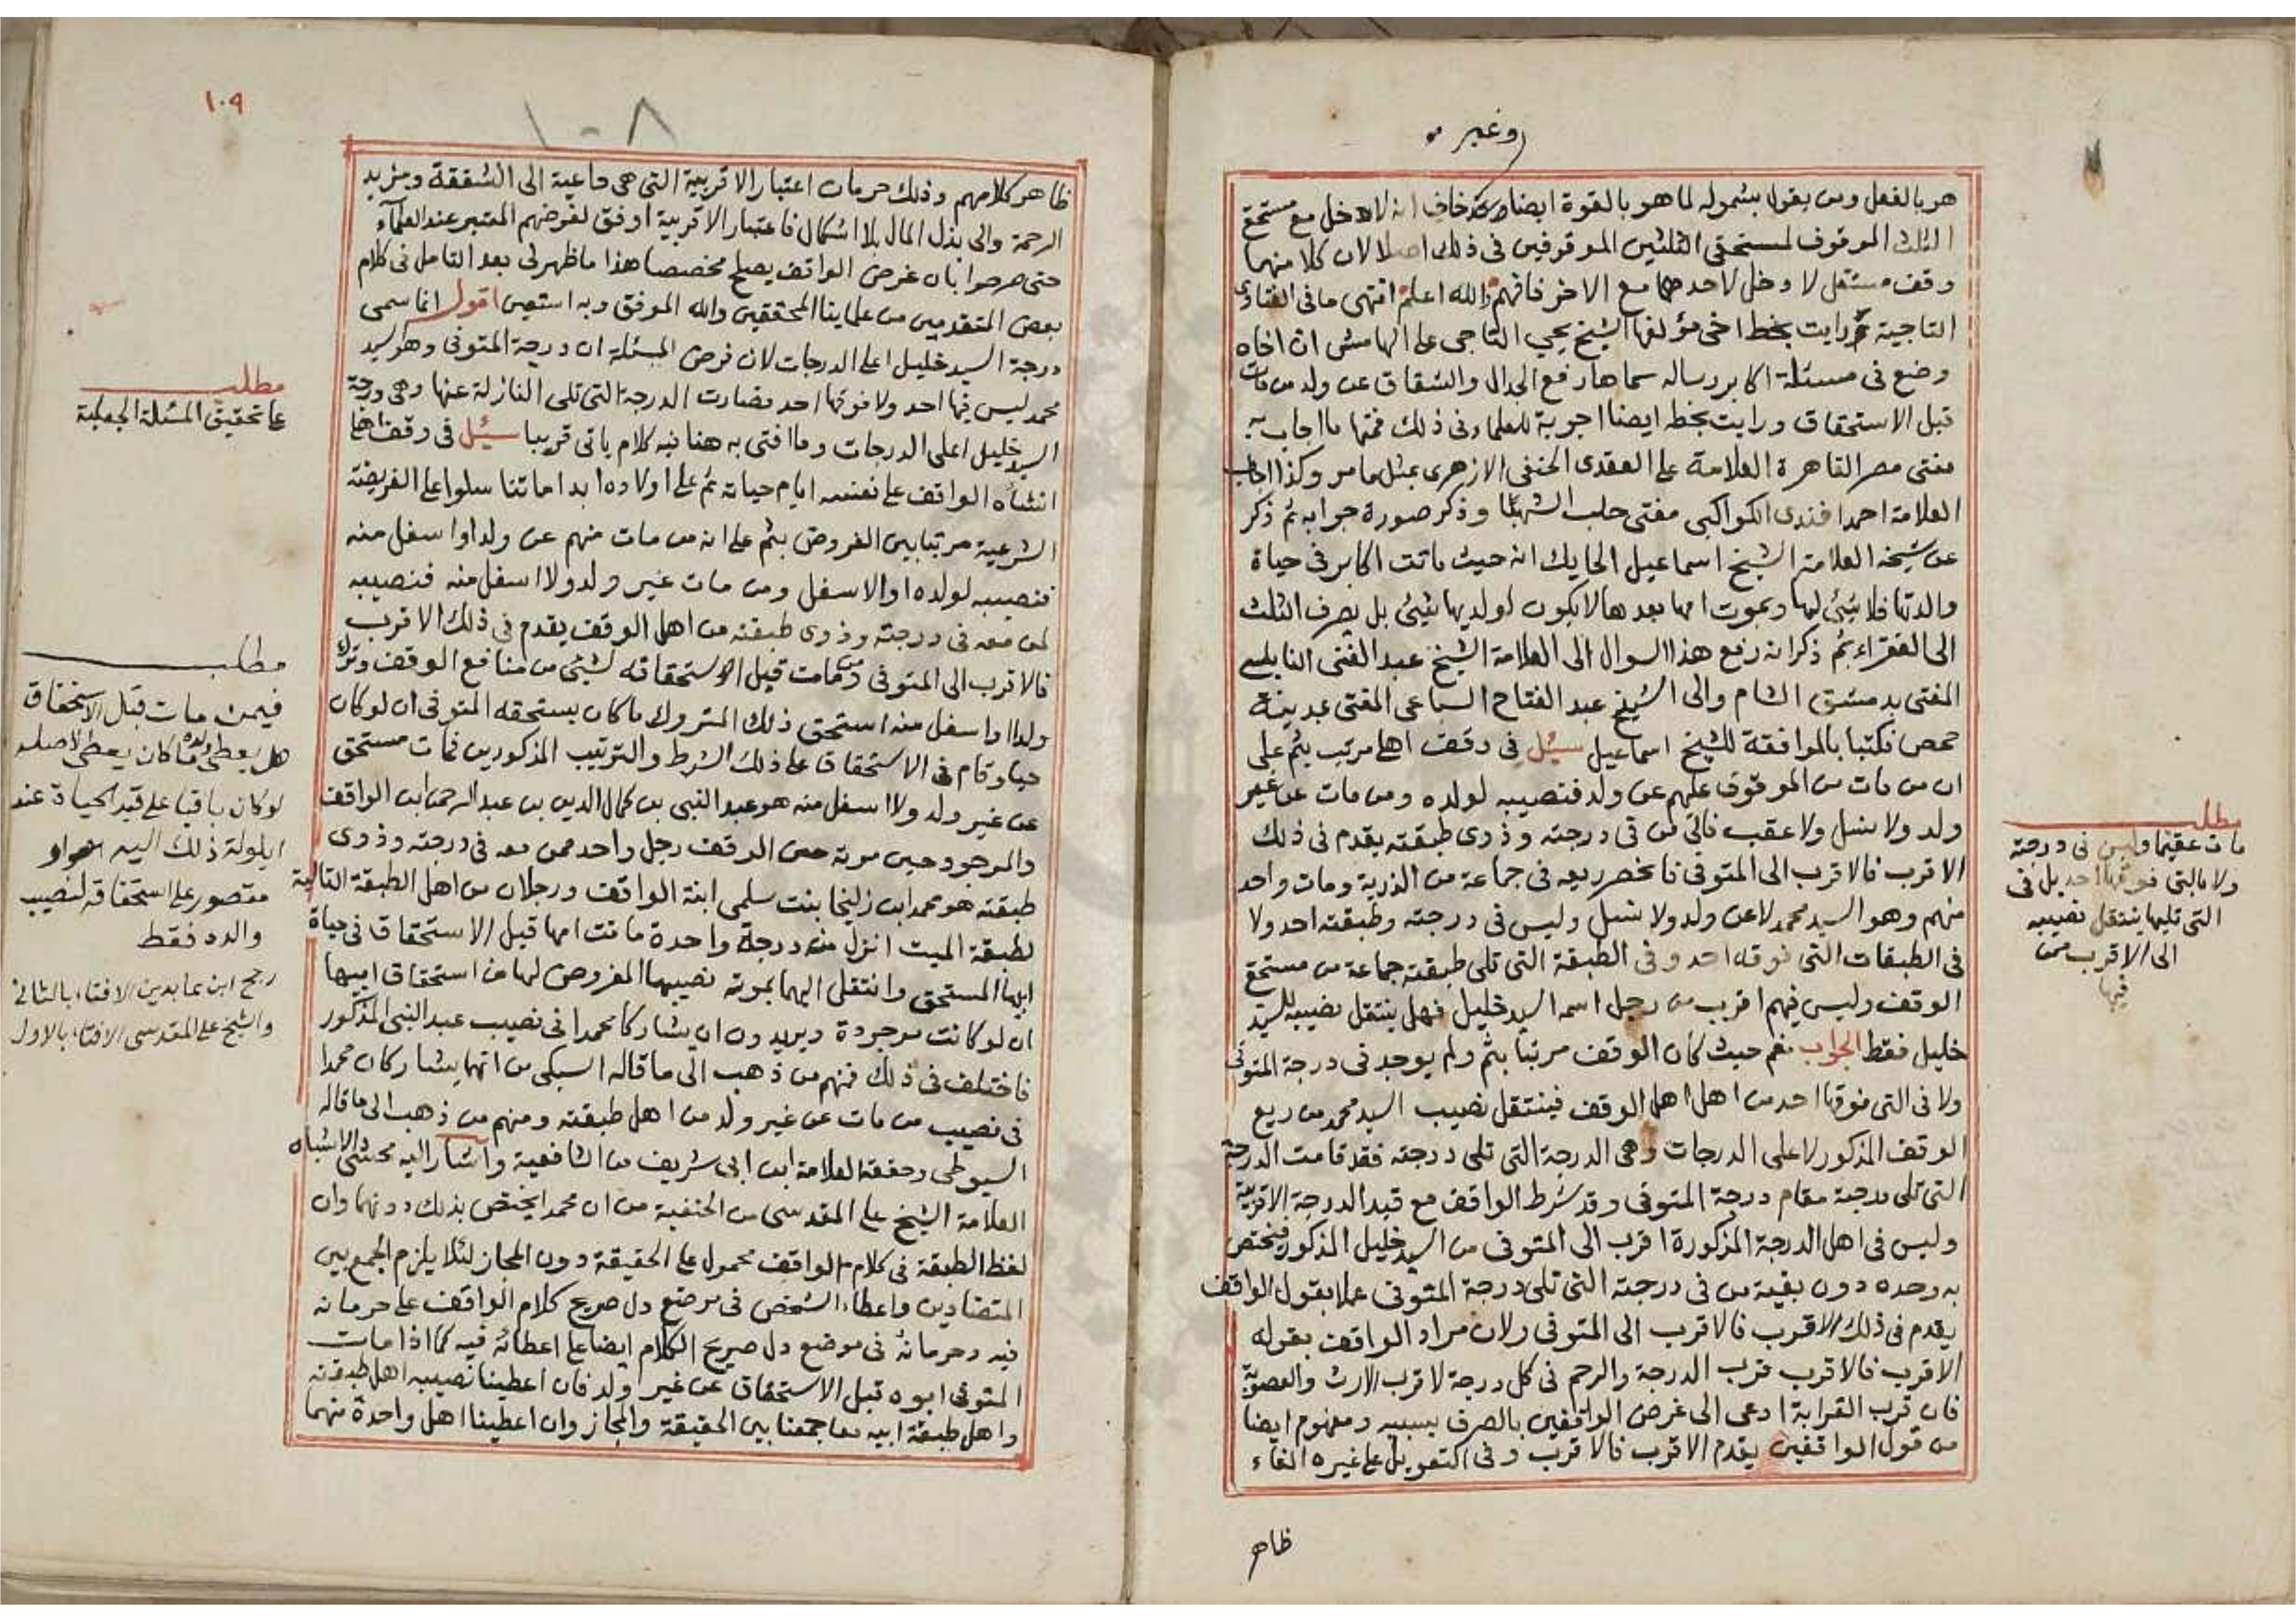 وغير
هو بالفعل ومن يقول بشموله لما هو بالقوة ايضا انه لا دخل مع مستحق
الثلث الموقوف لمستحقي الثلثين الموقوفين في ذلك اصلا لان كلا منهما
وقف مستقل لا دخل لاحدهما مع الاخر فافهم والله اعلم انتهى ما في الفتاوى
التاجية ورايت بخط اخي مؤلفها الشيخ يحيى التاجي على الهامش ان اخاه
وضع في مسئلة اكابر رساله سماها رفع الجدال والشقاق عن ولد من مات
قبل الاستحقاق ورايت بخطه ايضا اجوبة للعلماء في ذلك فمنها ما اجاب به
مفتى مصر القاهرة العلامة على العقدى الحنفى الازهرى بمثل ما مر وكذا اجاب
العلامة احمد افندى الكواكبى مفتى حلب الشهبا وذكر صورة جوابه ثم ذكر
عن شيخه العلامة الشيخ اسماعيل الحايك انه حيث ماتت اكابر في حياة
والدتها فلا شيئ لها وبموت امها بعدها لا يكون لولديها شيئ بل يصرف الثلث
الى الفقراء ثم ذكر انه رفع هذا السوال الى العلامة الشيخ عبد الغنى النابلسى
المفتى بدمشق الشام والى الشيخ عبد الفتاح السباعى المفتى بمدينة
حمص فكتبا بالموافقة للشيخ اسماعيل سئل في وقف اهلى مرتب بثم على
ان من مات من الموقوف عليهم عن ولد فنصيبه لولده ومن مات عن غير
ولد ولا نسل ولا عقب فالى من في درجته وذوى طبقته يقدم في ذلك
الاقرب فالاقرب الى المتوفى فانحصر ريعه في جماعة من الذرية ومات واحد
منهم وهو السيد محمد لا عن ولد ولا نسل وليس في درجته وطبقته احد ولا
في الطبقات التي فوقه احد وفي الطبقة التي تلى طبقته جماعة من مستحق
الوقف وليس فيهم اقرب من رجل اسمه السيد خليل فهل ينتقل نصيبه للسيد
خليل فقط الجواب نعم حيث كان الوقف مرتبا بثم ولم يوجد في درجة المتوفى
ولا في التي فوقها احد من اهل اهل الوقف فينتقل نصيب السيد محمد من ريع
الوقف المذكور لاعلى الدرجات وهي الدرجة التي تلى درجته فقد قامت الدرجة
التي تلى درجته مقام درجة المتوفى وقد شرط الواقف مع قيد الدرجة الاقربية
وليس في اهل الدرجة المذكورة اقرب الى المتوفى من السيد خليل المذكور فيختص
به وحده دون بقية من في درجته التي تلى درجة المتوفى عملا بقول الواقف
يقدم في ذلك الاقرب فالاقرب الى المتوفى ولان مراد الواقف بقوله
الاقرب فالاقرب قرب الدرجة والرحم في كل درجة لا قرب الارث والعصوبة
فان قرب القرابة ادعى الى غرض الواقفين بالصرف بسببه ومفهوم ايضا
من قول الواقفين يقدم الاقرب فالاقرب وفي التعويل على غيره الغاء
ظاهر
مطلب
مات عقيما وليس في درجته
ولا بالتي فوقها احد بل في
التي تليها ينتقل نصيبه
الى الاقرب ممن
فيها
١٠٩
١٠٨
ظاهر كلامهم وذلك حرمان اعتبار الاقربية التي هي داعية الى الشفقة ومزيد
الرحمة والى بذل المال بلا اشكال فاعتبار الاقربية اوفق لغرضهم المعتبر عند العلمآء
حتى صرحوا بان غرض الواقف يصلح مخصصا هذا ما ظهر لى بعد التامل في كلام
بعض المتقدمين من علماينا المحققين والله الموفق وبه استعين اقول انما سمى
درجة السيد خليل اعلى الدرجات لان فرض المسئلة ان درجة المتوفى وهو السيد
محمد ليس فيها احد ولا فوقها احد فصارت الدرجة التي تلى النازلة عنها وهي درجة
السيد خليل اعلى الدرجات وما افتى به هنا فيه كلام ياتى قريبا سئل في وقف اهلى
انشأه الواقف على نفسه ايام حياته ثم على اولاده ابدا ما تناسلوا على الفريضة
الشرعية مرتبا بين الفروض بثم على انه من مات منهم عن ولد او اسفل منه
فنصيبه لولده او الاسفل ومن مات عن غير ولد ولا اسفل منه فنصيبه
لمن معه في درجته وذوى طبقته من اهل الوقف يقدم في ذلك الاقرب
فالاقرب الى المتوفى ومن مات قبل استحقاقه لشيئ من منافع الوقف وترك
ولدا او اسفل منه استحق ذلك المتروك ما كان يستحقه المتوفى ان لو كان
حيا وقام في الاستحقاق على ذلك الشرط والترتيب المذكورين فمات مستحق
عن غير ولد ولا اسفل منه هو عبد النبى بن كمال الدين بن عبد الرحمن ابن الواقف
والموجود حين موته من الوقف رجل واحد ممن معه في درجته وذوى
طبقته هو محمد ابن زليخا بنت سلمى ابنة الواقف ورجلان من اهل الطبقة التالية
لطبقة الميت انزل منه درجة واحدة ماتت امها قبل الاستحقاق في حياة
ابيها المستحق وانتقل اليهما بموته نصيبها المفروض لها من استحقاق ابيها
ان لو كانت موجودة ويريدون ان يشاركا محمدا في نصيب عبد النبى المذكور
فاختلف في ذلك فمنهم من ذهب الى ما قاله السبكى من انهما يشاركان محمدا
في نصيب من مات عن غير ولد من اهل طبقته ومنهم من ذهب الى ما قاله
السيوطى وحققه العلامة ابن ابى شريف من الشافعية واشار اليه محشى الاشباه
العلامة الشيخ على المقدسى من الحنفية من ان محمدا يختص بذلك دونهما وان
لفظ الطبقة في كلام الواقف محمول على الحقيقة دون المجاز لئلا يلزم الجمع بين
المتضادين واعطاء الشخص في موضع دل صريح كلام الواقف على حرمانه
فيه وحرمانه في موضع دل صريح الكلام ايضا على اعطائه فيه كما اذا مات
المتوفى ابوه قبل الاستحقاق عن غير ولد فان اعطينا نصيبه اهل طبقته
واهل طبقة ابيه معا جمعنا بين الحقيقة والمجاز وان اعطينا اهل واحدة منهما
مطلب
على تحقيق المسئلة الجعلية
مطلب
فيمن مات قبل الاستحقاق
هل يعطى ولده ما كان يعطى لاصله
لو كان باقيا على قيد الحياة عند
ايلولة ذلك اليه او
مقصور على استحقاقه لنصيب
والده فقط
رجح ابن عابدين الافتاء بالثاني
والشيخ على المقدسى الافتاء بالاول